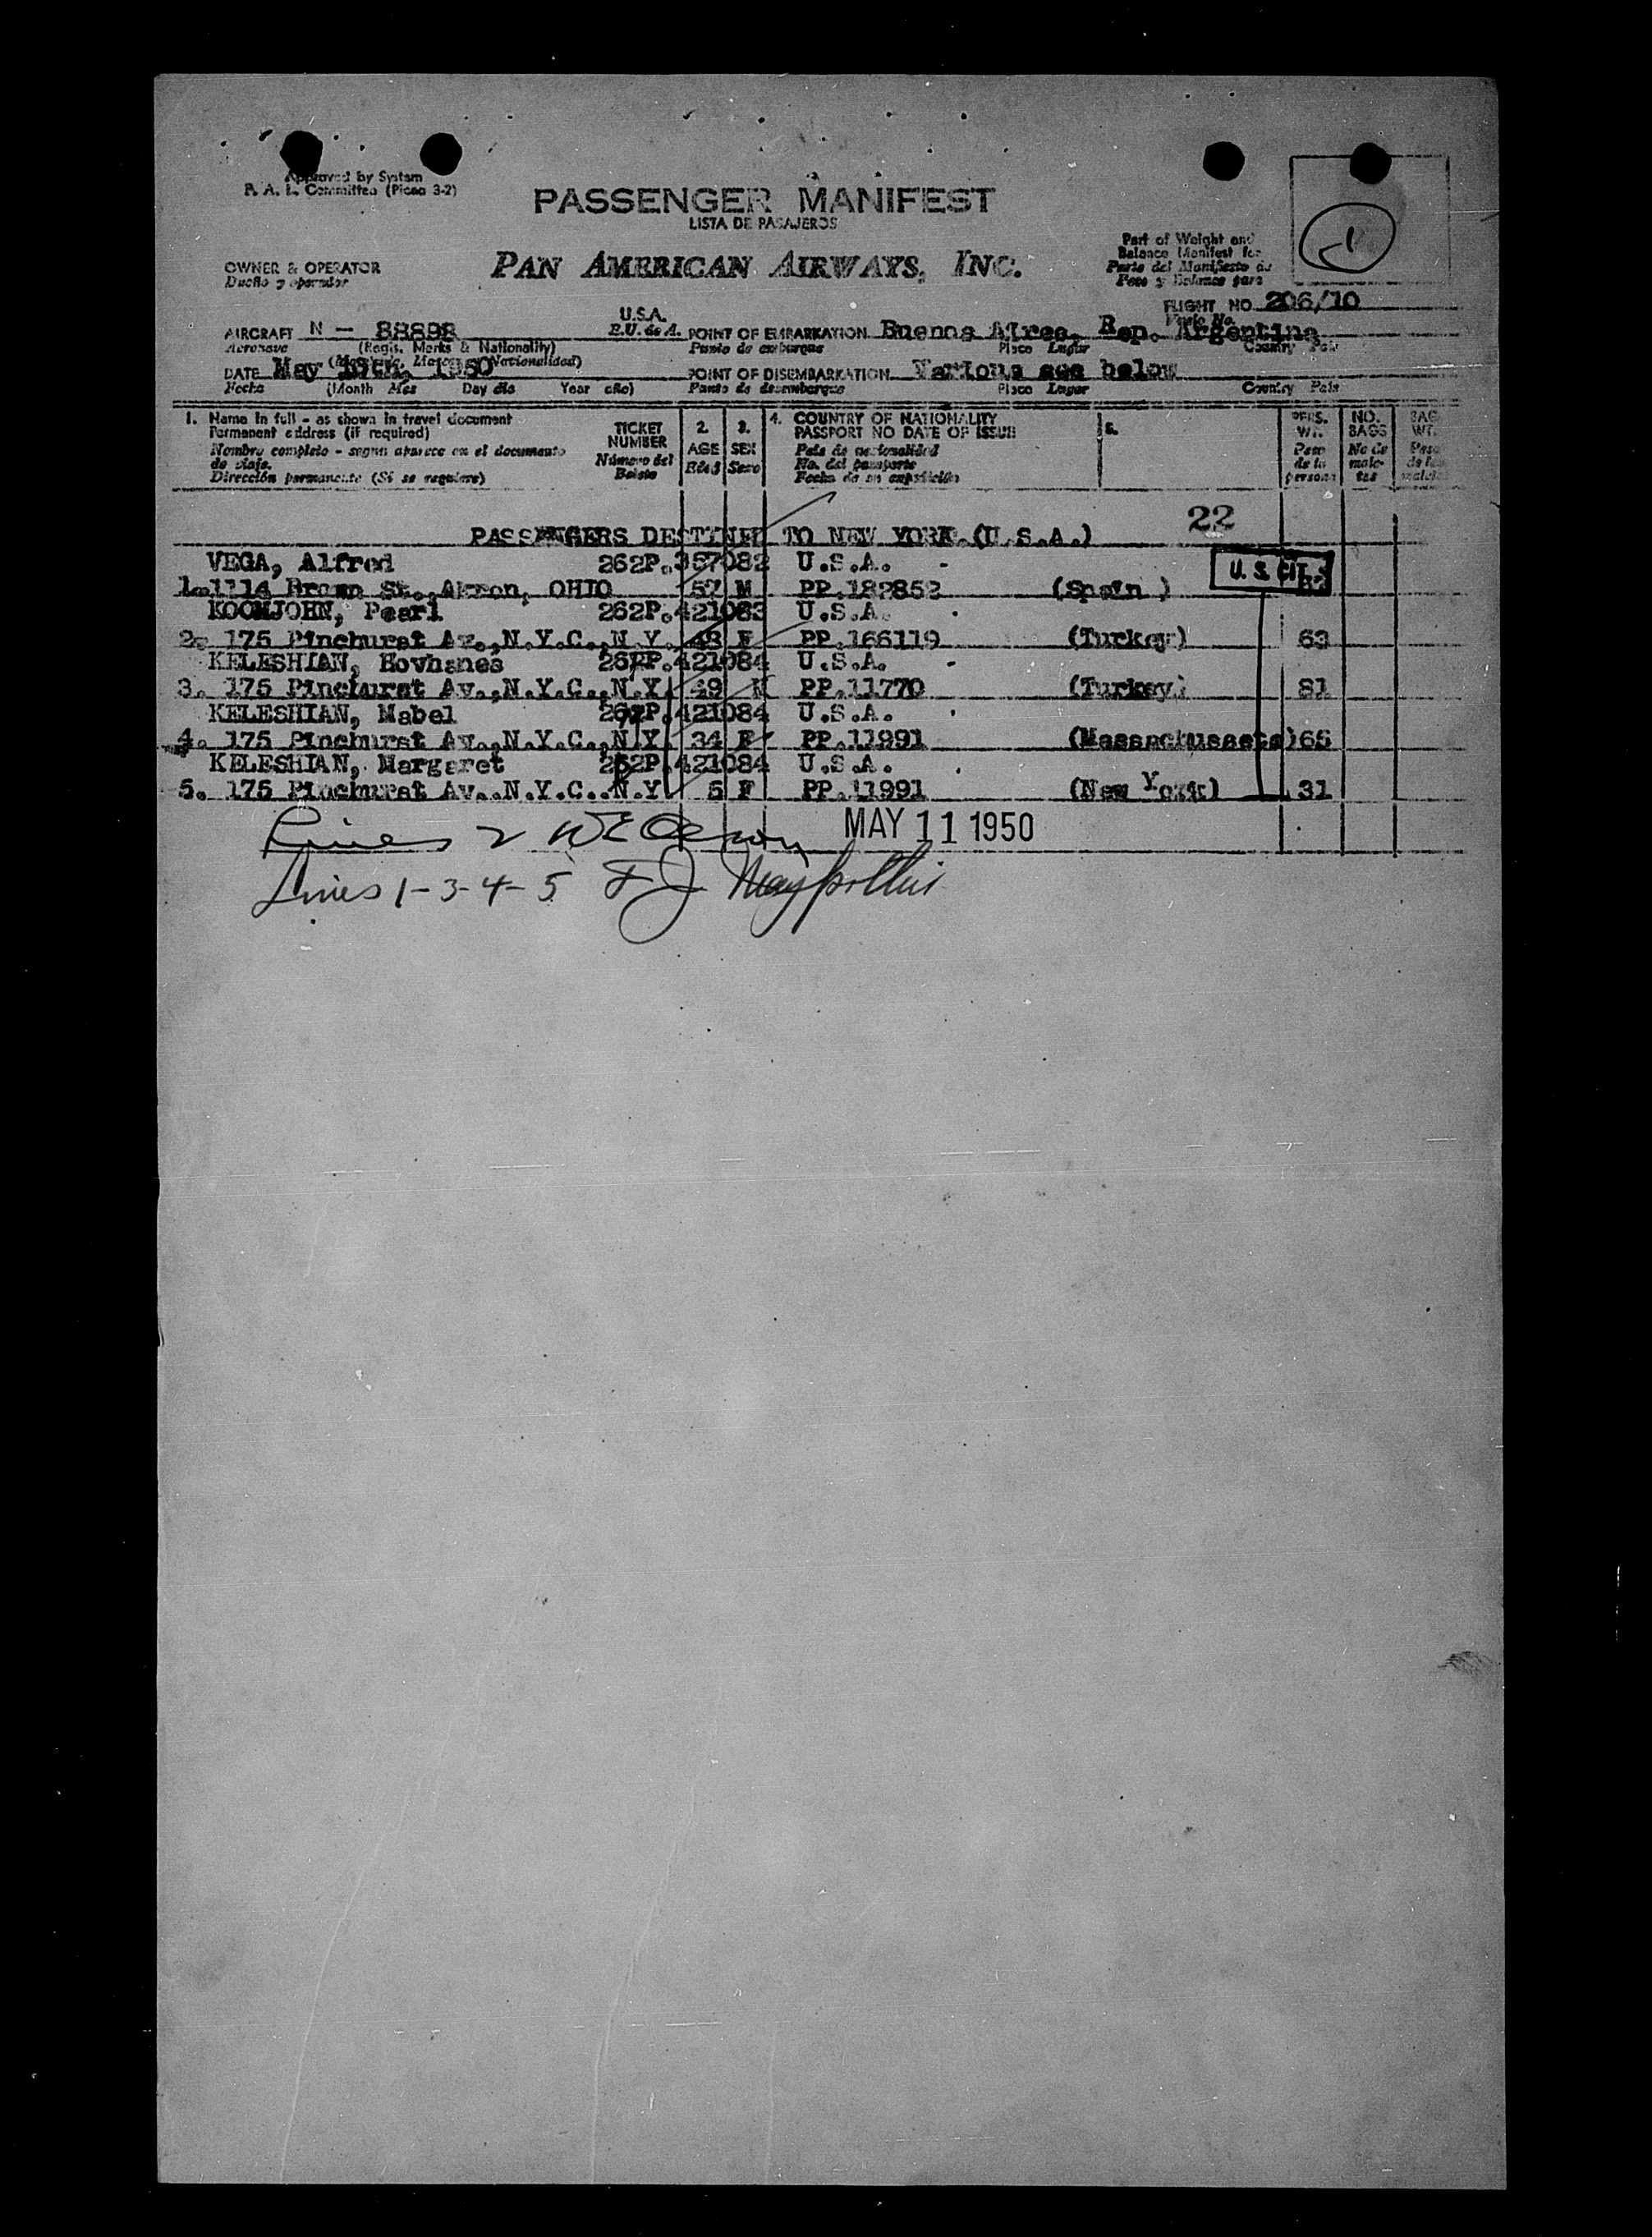 Approved by System
P. A. L. Committee (Picao 3-2)
PASSENGER MANIFEST
LISTA DE PASAJEROS
1
OWNER & OPERATOR
Dueño y operador
PAN AMERICAN AIRWAYS, INC.
Part of Weight and
Balance Manifest for
Parte del Manifiesto de
Peso y Balance para
FLIGHT NO. 206/10
Vuelo No.
AIRCRAFT N - 88898 U.S.A. POINT OF EMBARKATION Buenos Aires, Rep. Argentina
Aeronave (Regis. Marks & Nationality) E.U. de A. Punto de embarque Place Lugar Country País
(Matrícula, Marcas Nacionalidad)
DATE May 10th, 1950 POINT OF DISEMBARKATION Various see below
Fecha (Month Mes Day día Year año) Punto de desembarque Place Lugar Country País
1. Name in full - as shown in travel document
Permanent address (if required)
Nombre completo - segun aparece en el documento
de viaje.
Dirección permanente (Si se requiere)
TICKET
NUMBER
Número del
Boleto
2.
AGE
Edad
3.
SEX
Sexo
4. COUNTRY OF NATIONALITY
PASSPORT NO DATE OF ISSUE
País de nacionalidad
No. del pasaporte
Fecha de su expedición
5.
PERS.
WT.
Peso
de la
persona
NO.
BAGS
No de
male-
tas
BAG
WT.
Peso
de las
maletas
PASSENGERS DESTINED TO NEW YORK (U.S.A.) 22
VEGA, Alfred 262P.357082 U.S.A. U. S. CIT.
1. 1114 Brown St., Akron, OHIO 57 M PP.182852 (Spain )
KOOMJOHN, Pearl 262P.421083 U.S.A.
2. 175 Pinehurst Av.,N.Y.C.,N.Y. 48 F PP.166119 (Turkey) 63
KELESHIAN, Hovhanes 262P.421084 U.S.A.
3. 175 Pinehurst Av.,N.Y.C.,N.Y. 49 M PP.11770 (Turkey) 81
KELESHIAN, Mabel 262P.421084 U.S.A.
4. 175 Pinehurst Av.,N.Y.C.,N.Y. 34 F PP.11991 (Massachussets) 65
KELESHIAN, Margaret 262P.421084 U.S.A.
5. 175 Pinehurst Av..N.Y.C..N.Y. 5 F PP.11991 (New York) 31
Lines 2 MAY 11 1950
Lines 1-3-4-5